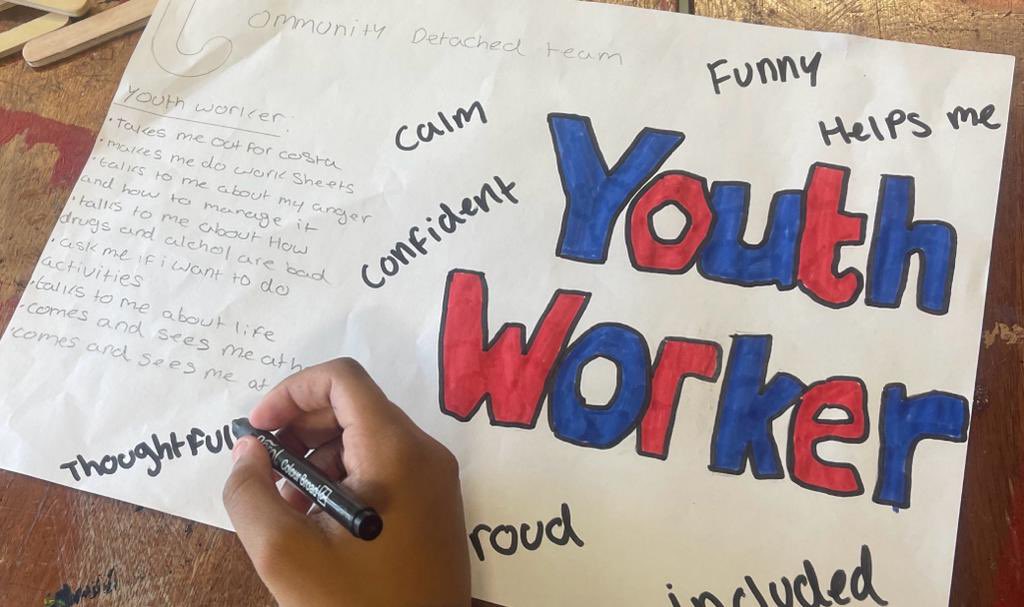 Community Detached team
Funny
Calm
Helps me
Youth worker:
• Takes me out for costa
• makes me do work sheets
• talks to me about my anger
and how to manage it
• talks to me about How
drugs and alchol are bad
• ask me if i want to do
activities
• talks to me about life
• comes and sees me at
• comes and sees me at
confident
Youth
Worker
Thoughtful
Colour Broad
roud
included